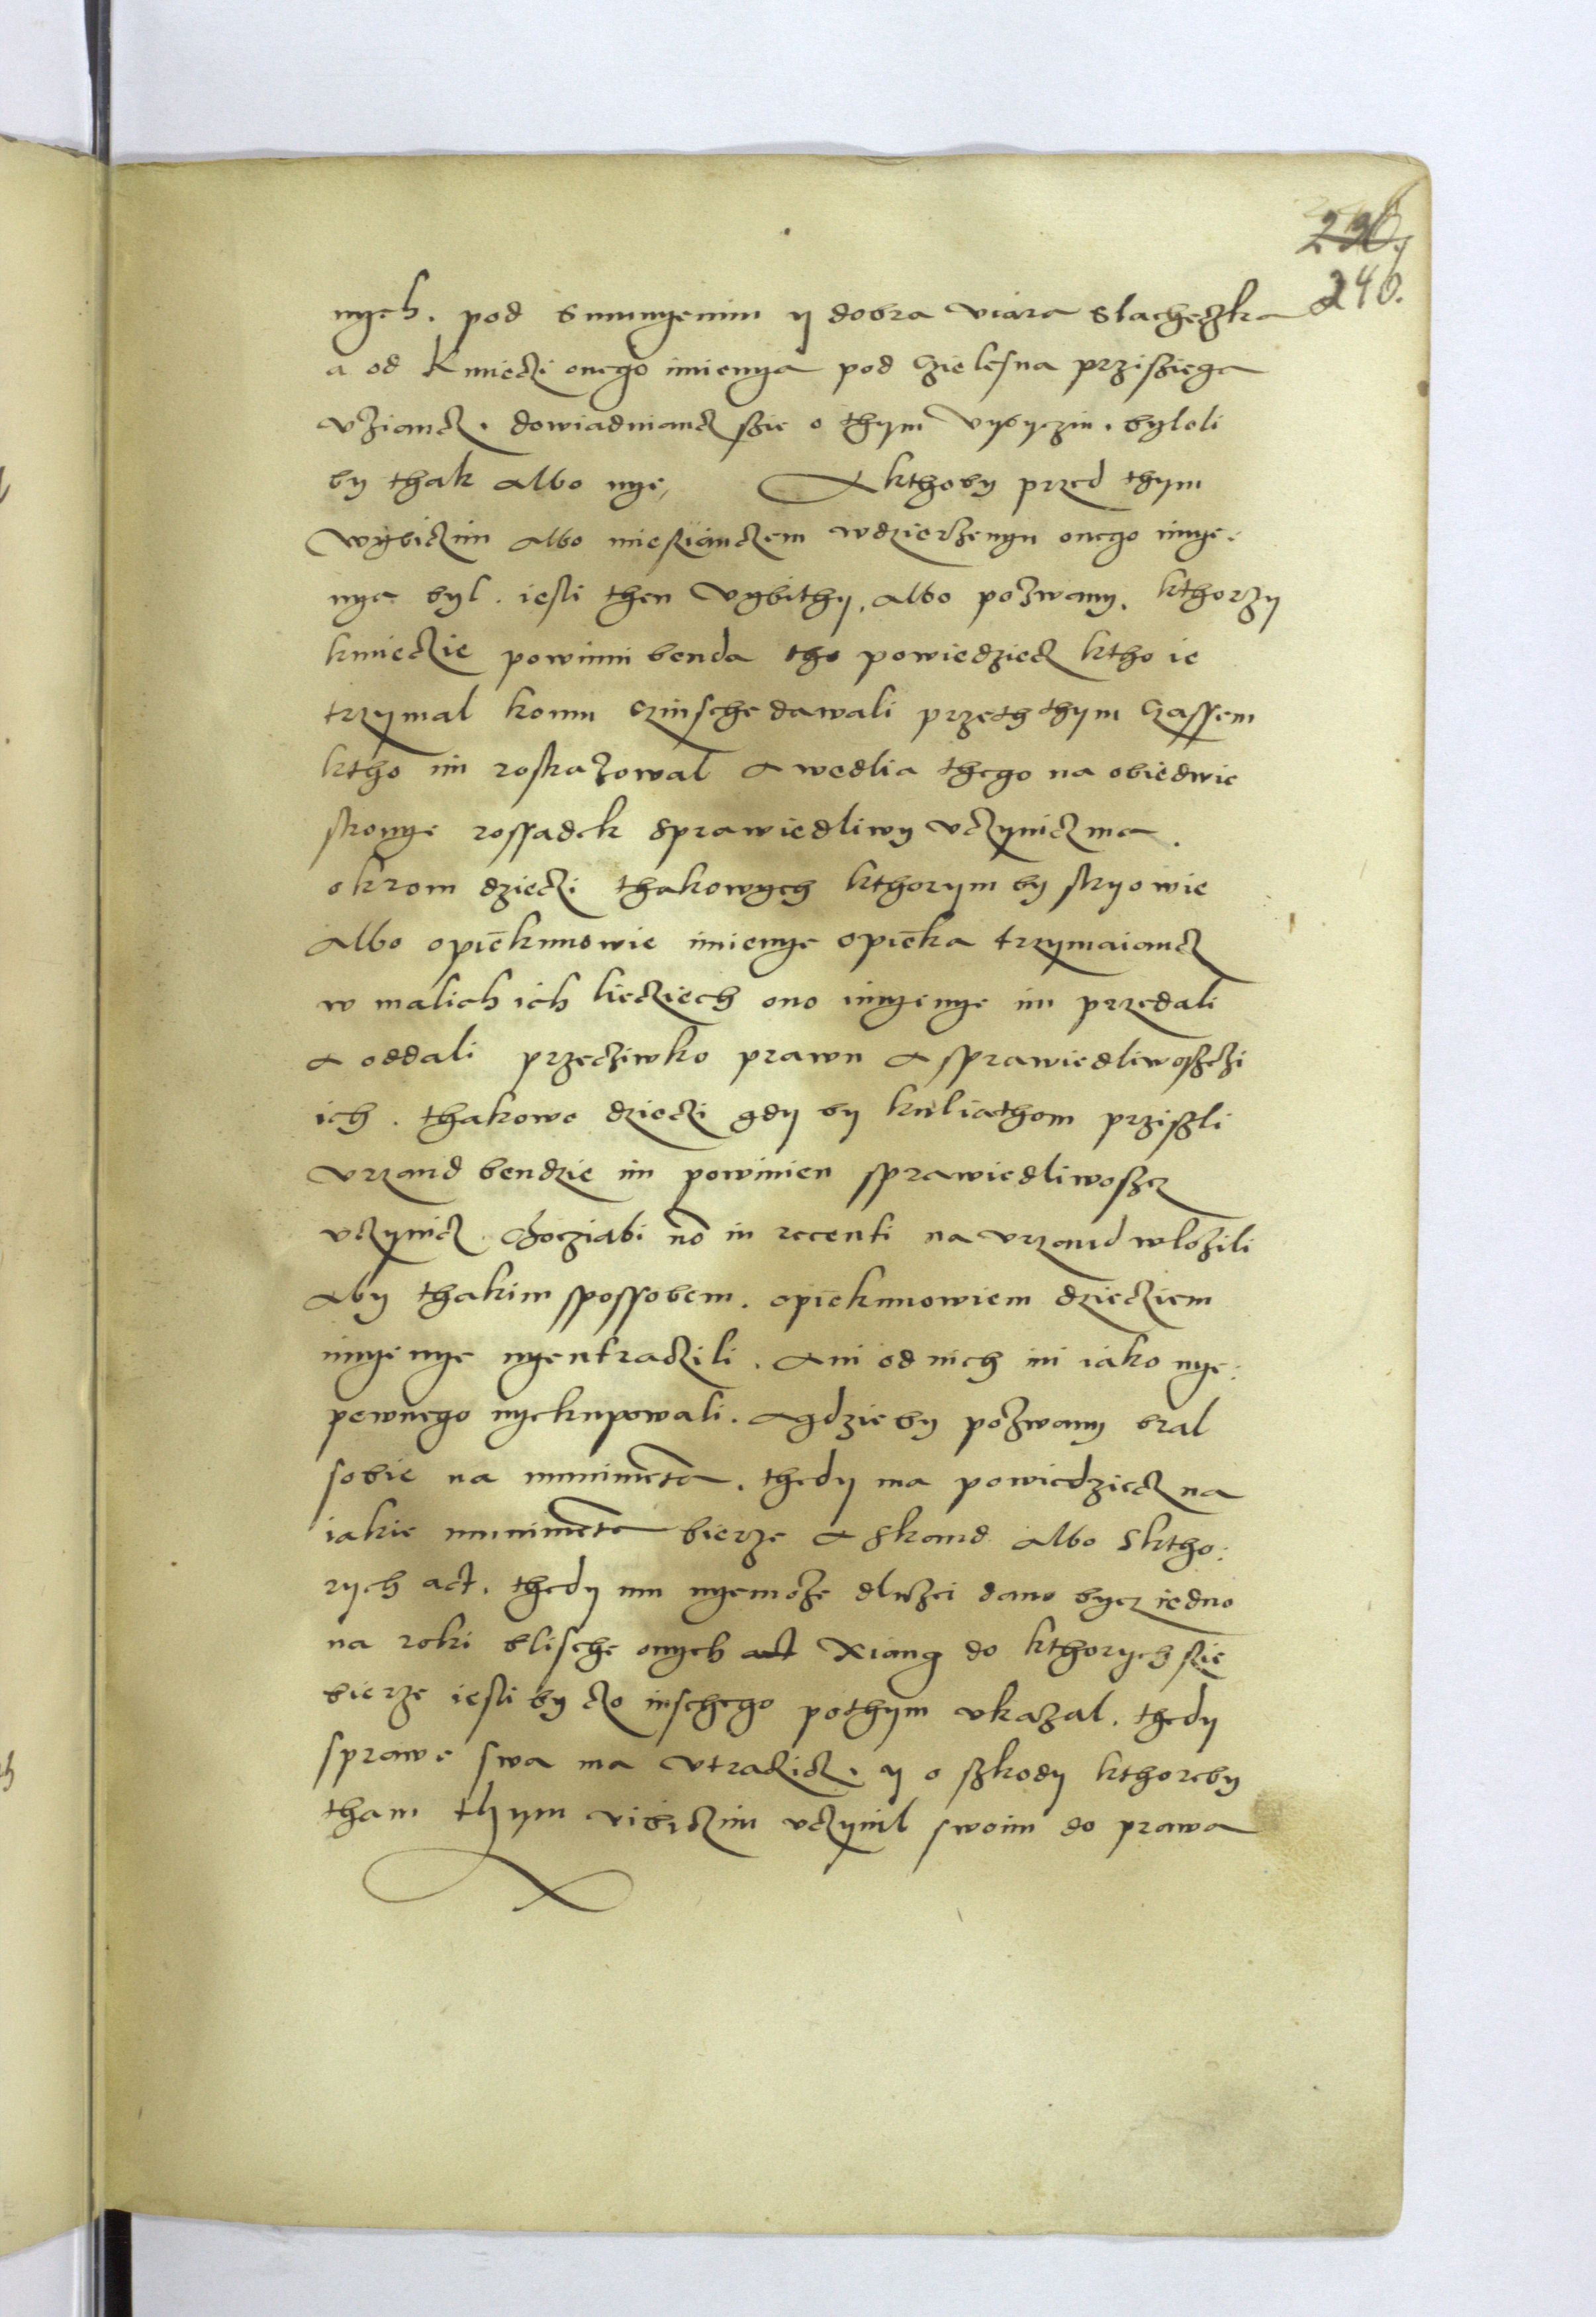 236
240.
nych. pod Sumnyenim y dobra viara Slacheczka
a od Kmieczi onego imienya pod Czielesna przisziega
vziancz. dowiaduiancz szie o thym vybyczin. byloli
by thak Albo nye, A kthoby przed thym
wybiczim Albo miesiianczem wdzierzenyu onego imye:
nya byl. iesli then vybithy. Albo pozwany. kthorzy
kmieczie powinni benda tho powiedziecz ktho ie
trzymal komu czinsche dawali przeth thym Czassem
ktho im roskazowal A wedlia thego na obiedwie
stronye rossadek Sprawiedliwy vczynicz ma.
okrom dzieczi thakowych kthorym by stryowie
Albo opiekunowie imienye opieka trzymaiancz
w malich ich liecziech ono imyenye im przedali
A oddali przecziwko prawu A sprawiedliwosczi
ich. thakowe dzieczi gdy by kuliathom prziszli
vrzand bendzie im powinien sprawiedliwoscz
vczynicz. Chocziabi no in recenti na vrzand wlozili
Aby thakim spossobem. opiekunowiem dziecziem
imyenye nyeutraczili. Ani od nich ini iako nye:
pewnego nyekupowali. A gdzie by pozwany bral
sobie na munimeta. thedy ma powiedziecz na
iakie munimeta bierze A Skand Albo Sktho:
rych act. thedy mu nyemoze dluzei dano bycz iedno
na roki blische onych act Xiang do kthorych sie
bierze iesli by czo inschego pothym vkazal. thedy
sprawe swa ma vtraczicz. y o szkody kthoreby
tham thym vibiczim vczynil swoim do prawa